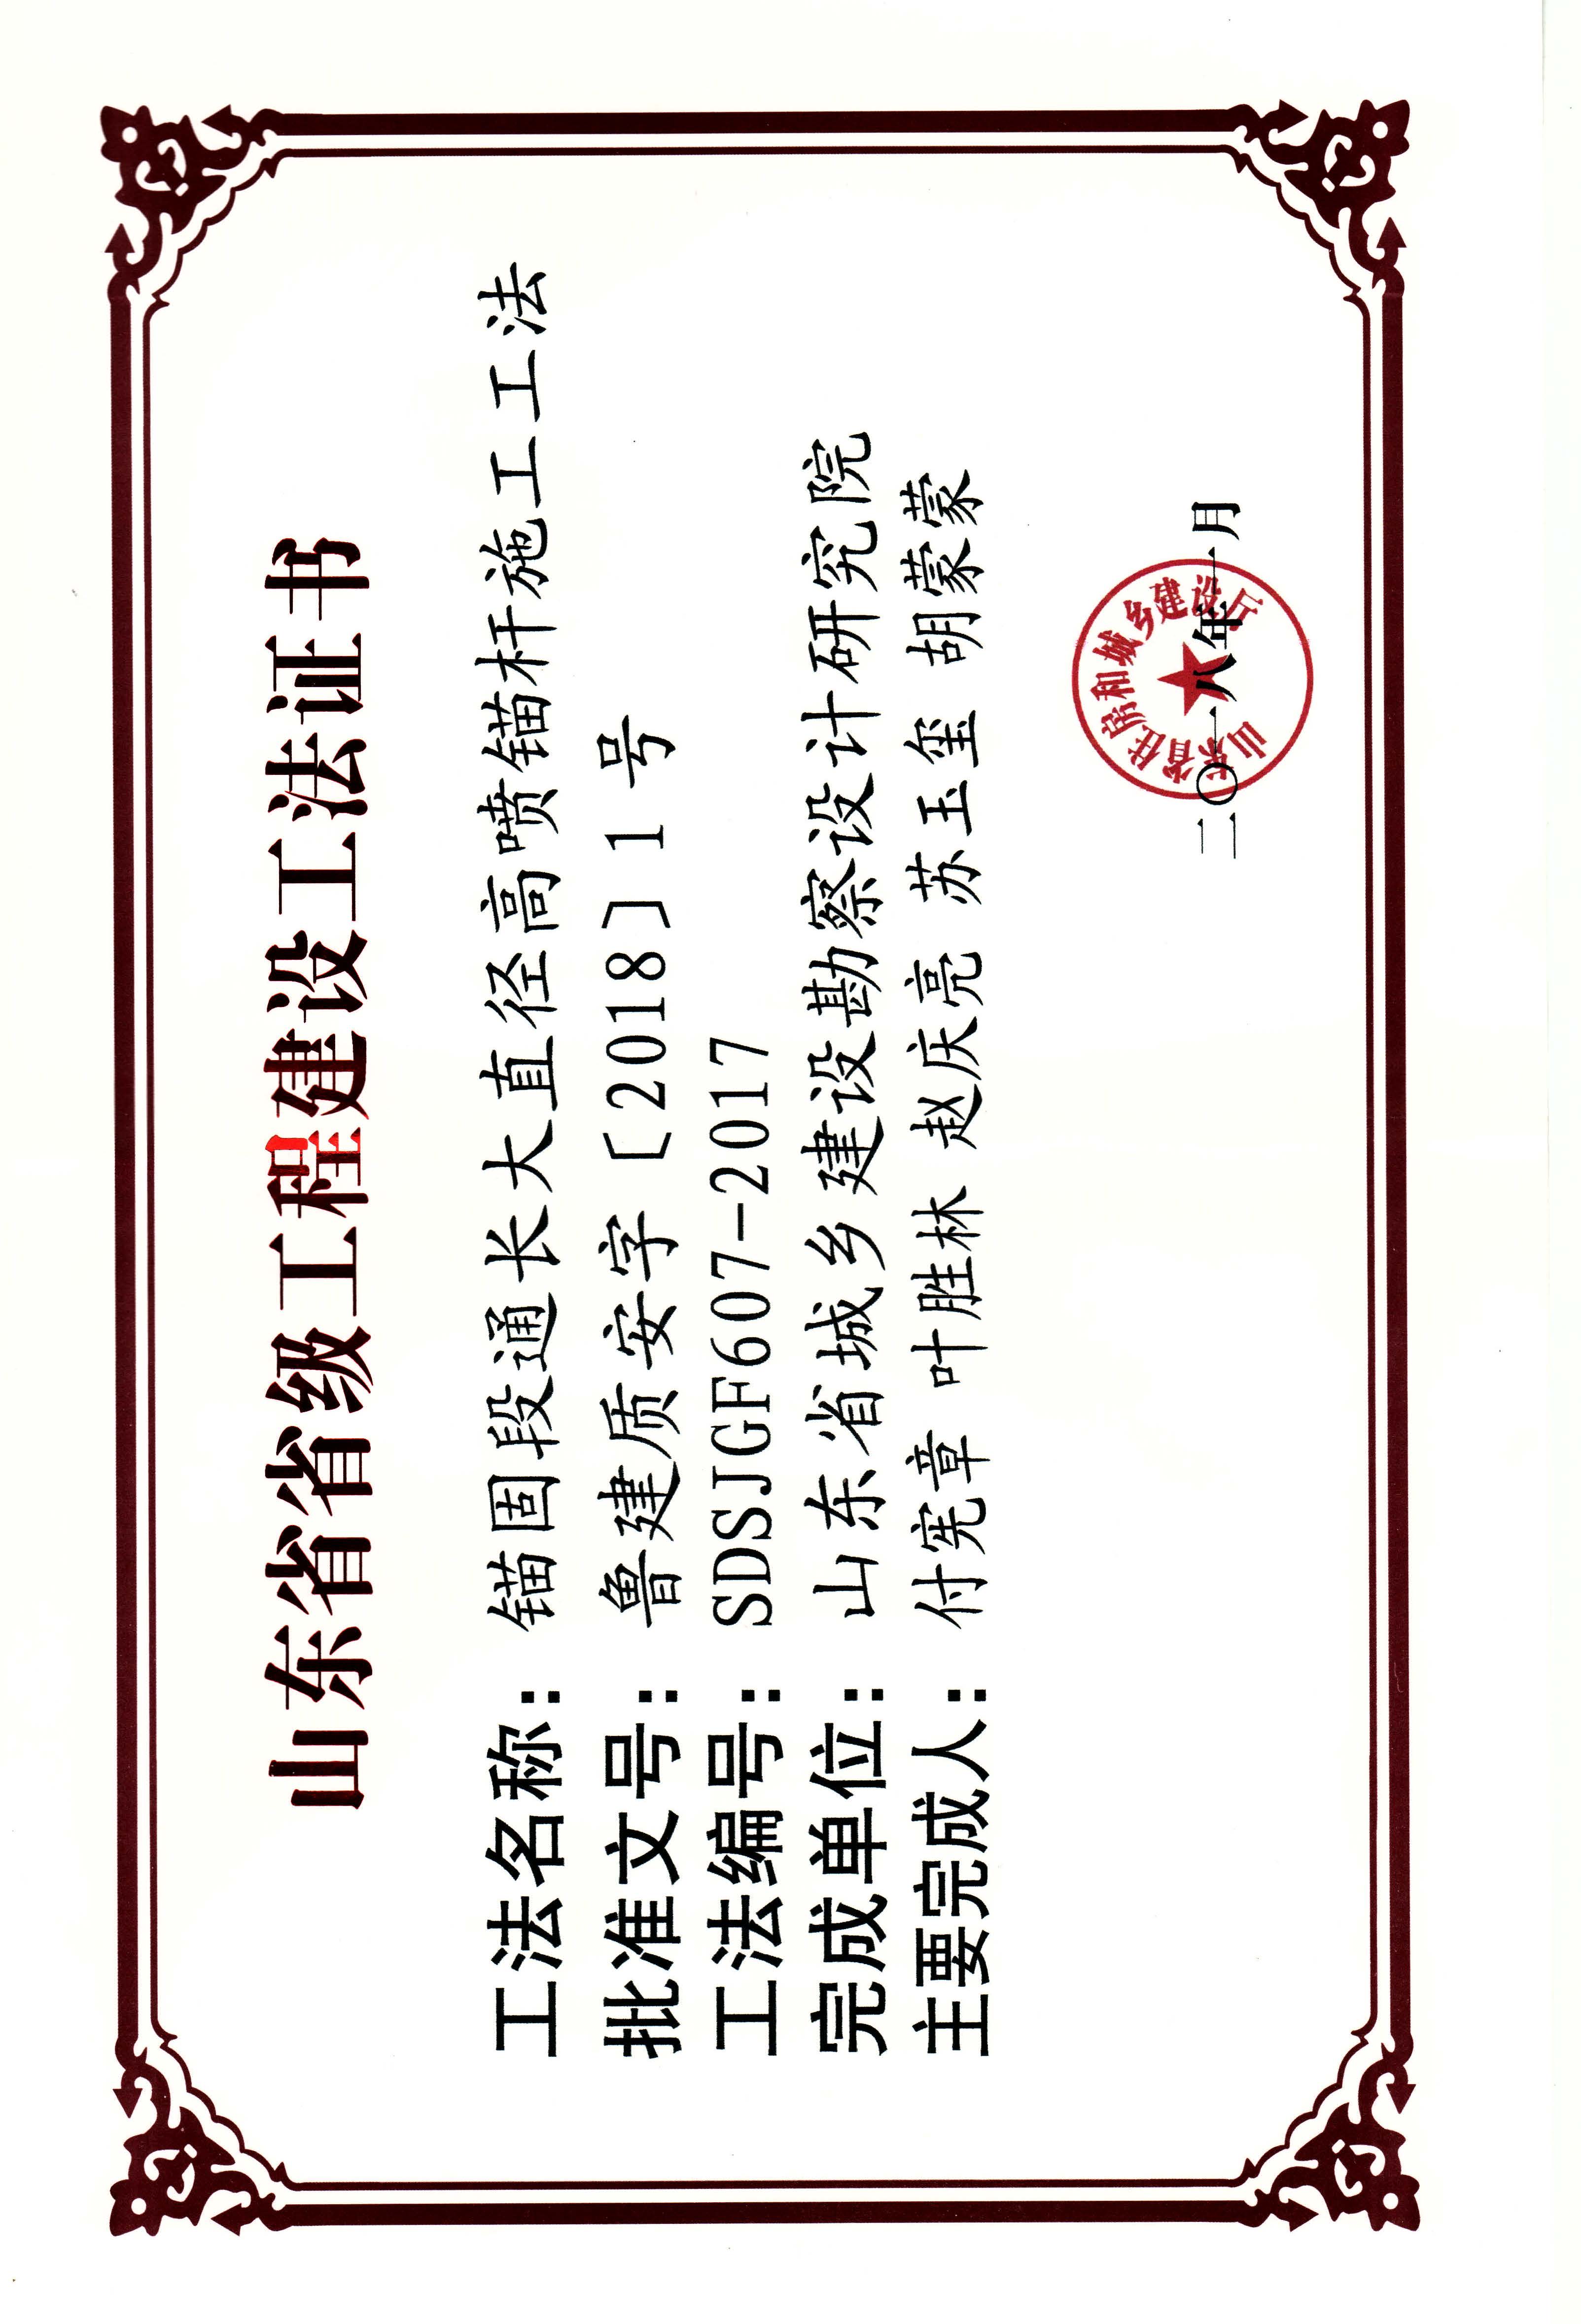 山东省省级工程建设工法证书
工法名称：锚固段通长大直径高喷锚杆施工工法
批准文号：鲁建质安字〔2018〕1号
工法编号：SDSJGF607-2017
完成单位：山东省城乡建设勘察设计研究院
主要完成人：付宪章 叶胜林 赵庆亮 苏玉玺 胡蒙蒙
山东省住房和城乡建设厅
二〇一八年一月